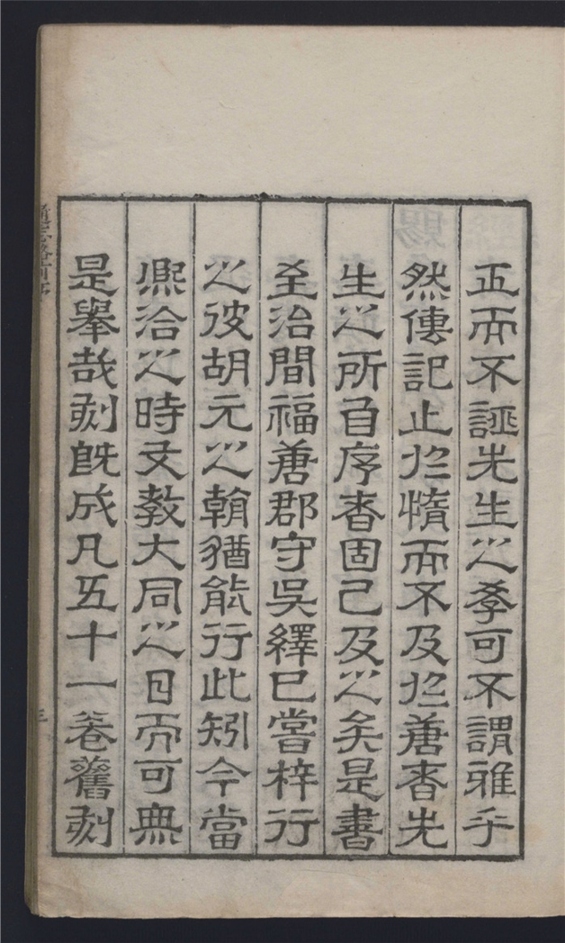 正而不誣先生之學可不謂雅乎
然傳記止於惰而不及於唐者先
生之所自序者固已及之矣是書
至治間福唐郡守吳繹已嘗梓行
之彼胡元之朝猶能行此矧今當
熙洽之時文教大同之日而可無
是舉哉刻既成凡五十一卷舊刻
三